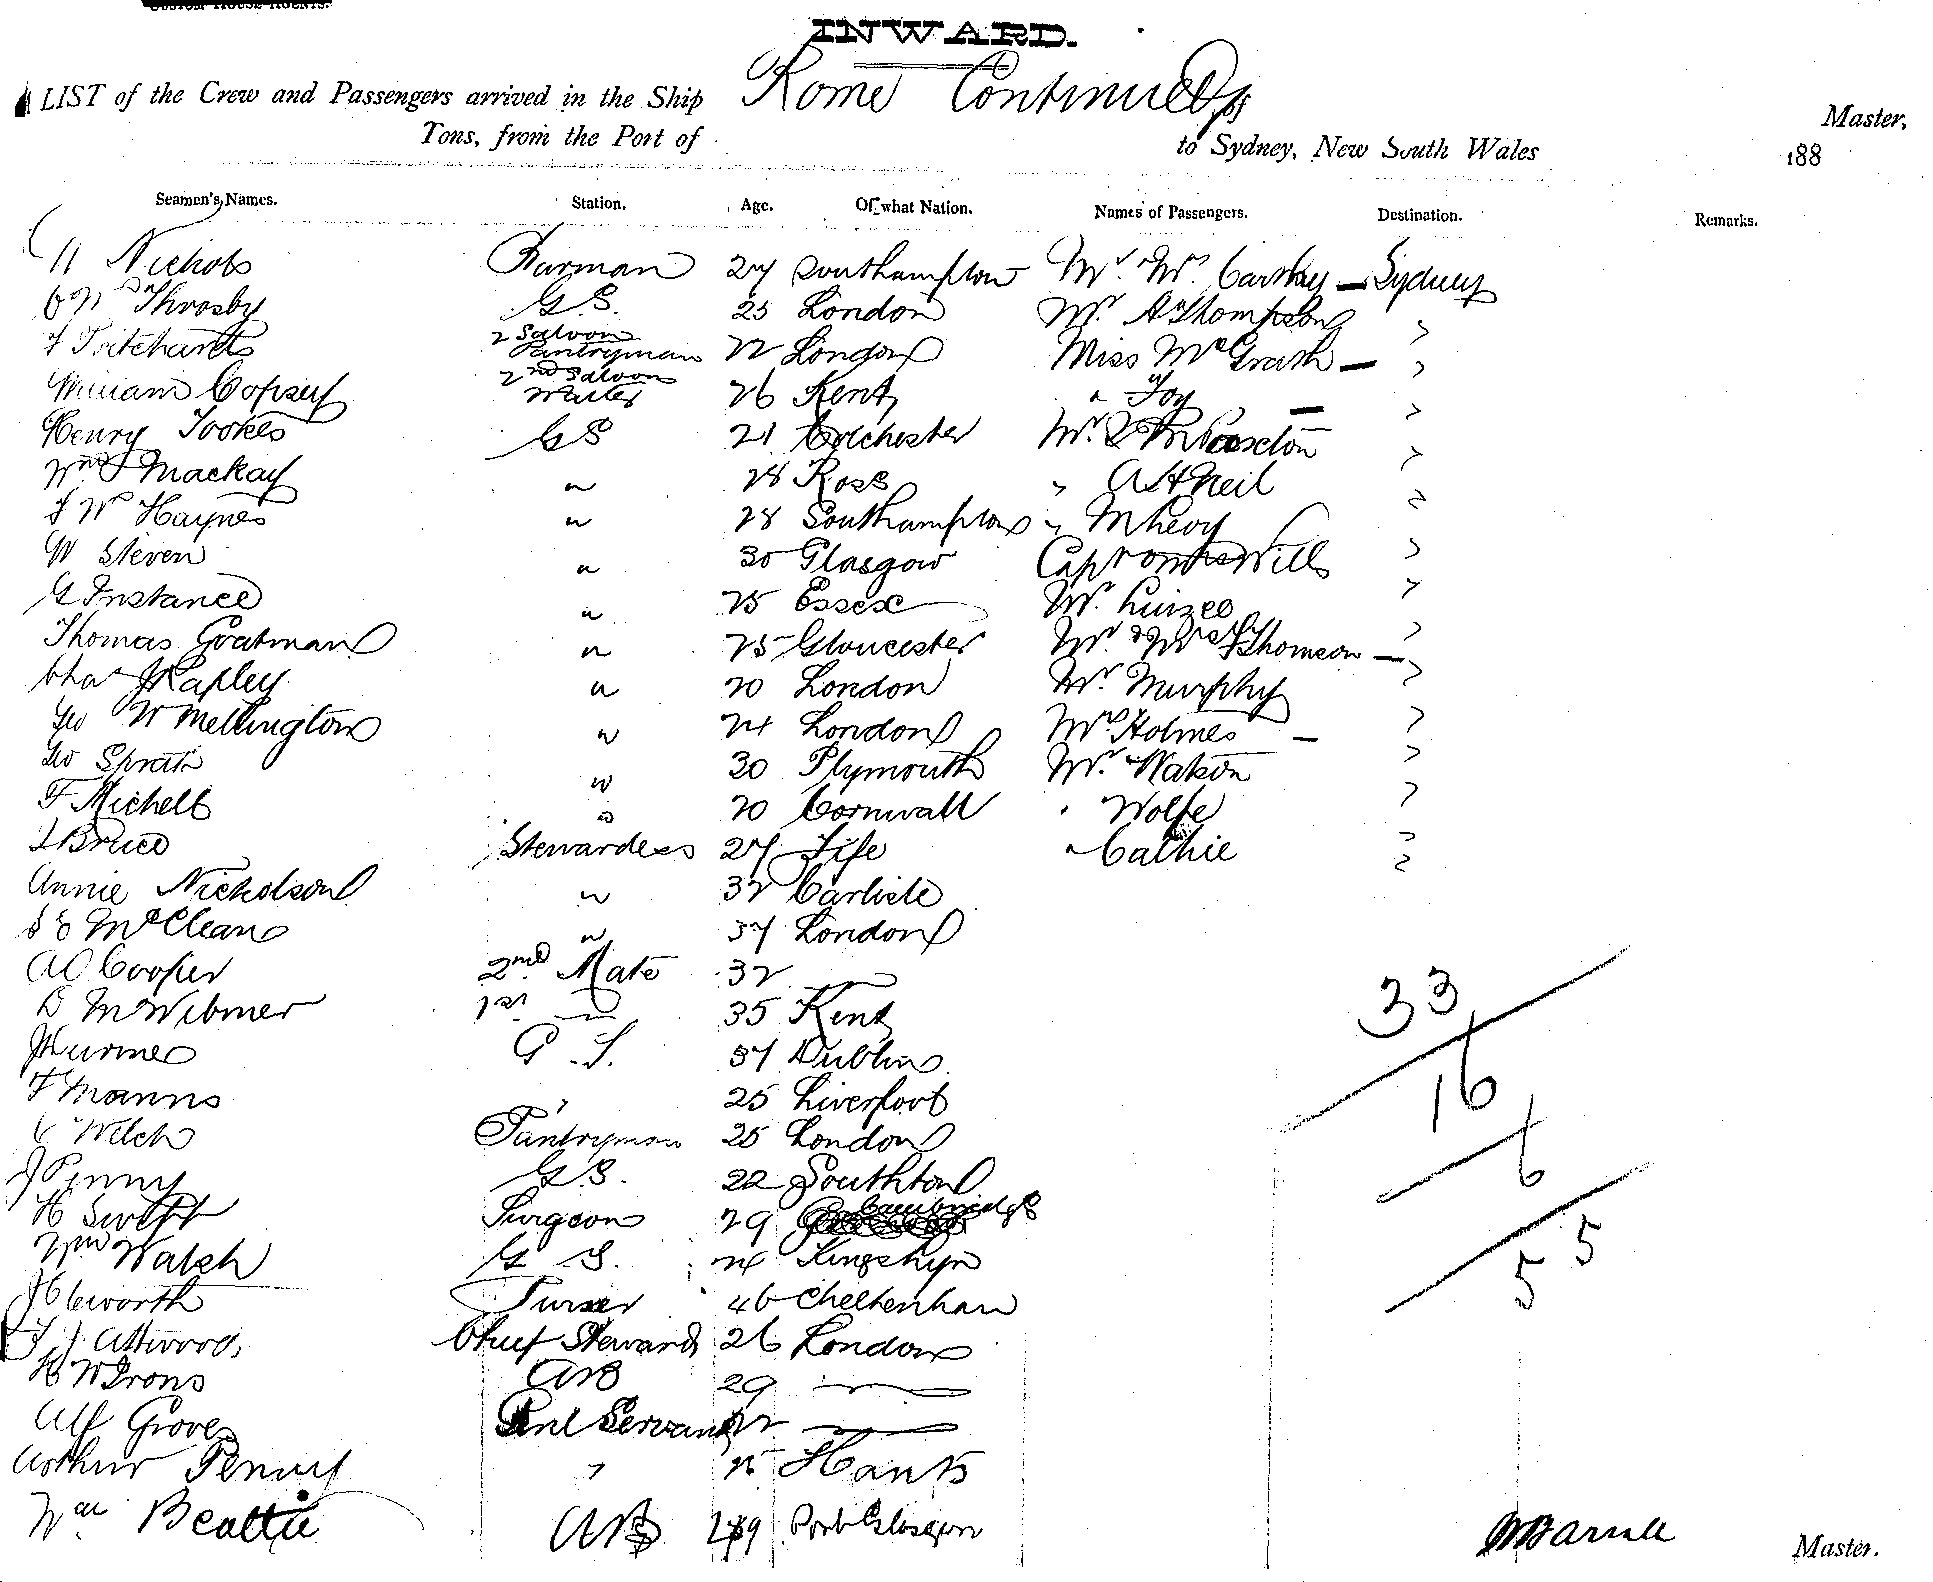 CUSTOM HOUSE AGENTS.
INWARD.
LIST of the Crew and Passengers arrived in the Ship Rome Continued of Master,
Tons, from the Port of to Sydney, New South Wales 188
Seamen's Names. Station. Age. Of what Nation. Names of Passengers. Destination. Remarks.
H Nichols Barman 27 Southampton Mr. Mrs Carthy — Sydney
Throsby G.S. 25 London Mr. A Thompson "
F Pritchard 2 Saloon Pantryman 22 London Miss McGrath — "
William Copsey 2nd Saloon Waiter 26 Kent " Foy — "
Henry Tookes GS 21 Colchester Mr. & Mrs Paxton "
Wm Mackay " 28 Ross " A H Neil "
J W Haynes " 28 Southampton " M Levy "
W Steven " 30 Glasgow Capt Wills "
G Instance " 25 Essex Mr. "
Thomas Goatman " 25 Gloucester Mr. & Mrs Thomson — "
Chas J Rapley " 20 London Mr. Murphy "
Geo W Mellington " 24 London Mrs Holmes — "
Geo Spratt " 30 Plymouth Mr. Watson "
F Michell " 20 Cornwall " Wolfe "
J Bruce Stewardess 27 Fife " Cathie "
Annie Nicholson " 32 Carlisle
S E McClean " 37 London
A C Cooper 2nd Mate 32 —
D McWibmer 1st — 35 Kent
G.S. 37 Dublin
F Manns " 25 Liverpool
C Welch Pantryman 25 London
J Penny G.S. 22 Southton
H Swift Surgeon 29 Cambridge
Wm Walsh G S. 24 Kingslyn
Purser 46 Cheltenham
F J Attwood Chief Steward 26 London
H W Irons AB 29 —
Alf Grover Genl Servant 22 —
Arthur Penny " 15 Hants
Wm Beattie AB 49 Port Glasgow
33
16
6
55
Master.